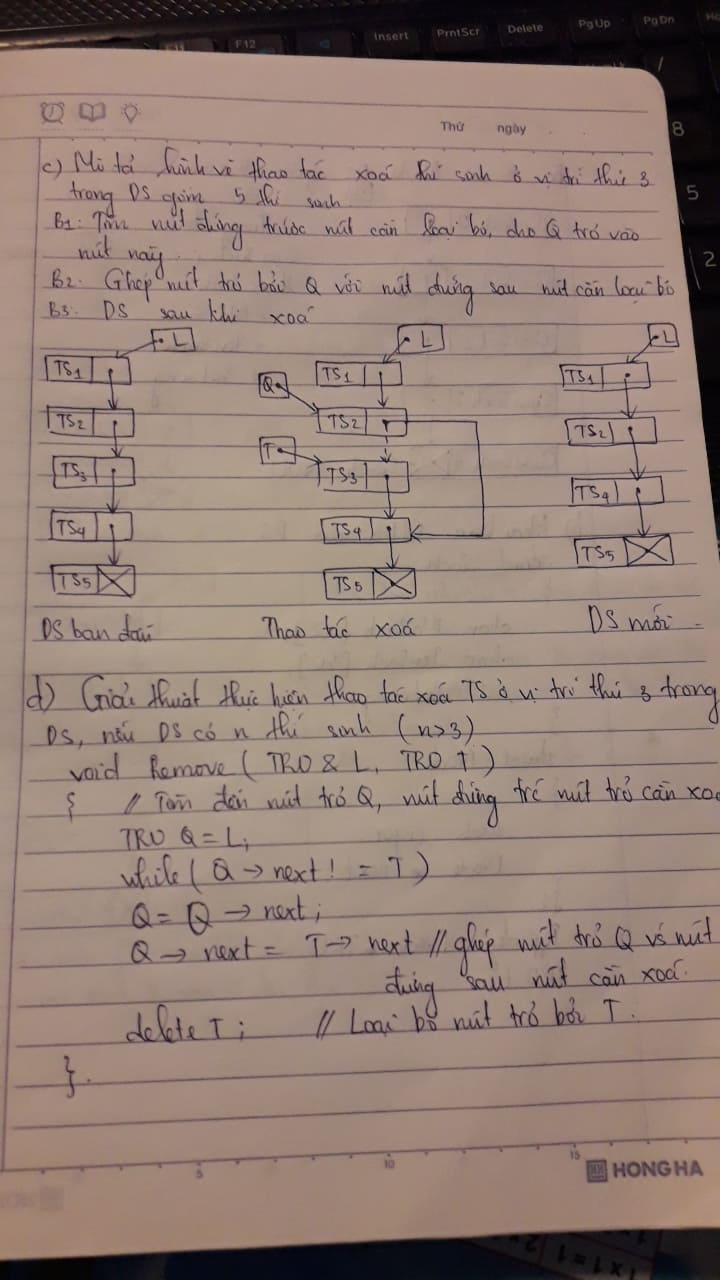 F12 Insert PrntScr Delete PgUp PgDn
8
5
2
Thứ ngày
c) Mô tả hình vẽ thao tác xoá thí sinh ở vị trí thứ 3
trong DS gồm 5 thí sinh
B1: Tìm nút đứng trước nút cần loại bỏ, cho Q trỏ vào
nút này.
B2: Ghép nút trỏ bởi Q với nút đứng sau nút cần loại bỏ
B3: DS sau khi xoá
L L L
TS1 TS1 TS1
Q
TS2 TS2 TS2
T
TS3 TS3 TS4
TS4 TS4 TS5
TS5 TS5
DS ban đầu Thao tác xoá DS mới
d) Giải thuật thực hiện thao tác xoá TS ở vị trí thứ 3 trong
DS, nếu DS có n thí sinh (n>3)
void Remove (TRO & L, TRO T)
{ // Tìm đến nút trỏ Q, nút đứng trế nút trỏ cần xo
TRO Q = L;
while (Q → next ! = T)
Q = Q → next;
Q → next = T → next // ghép nút trỏ Q vs nút
đứng sau nút cần xoá.
delete T; // Loại bỏ nút trỏ bởi T.
}.
5 10 15
HONG HA
1x1=1